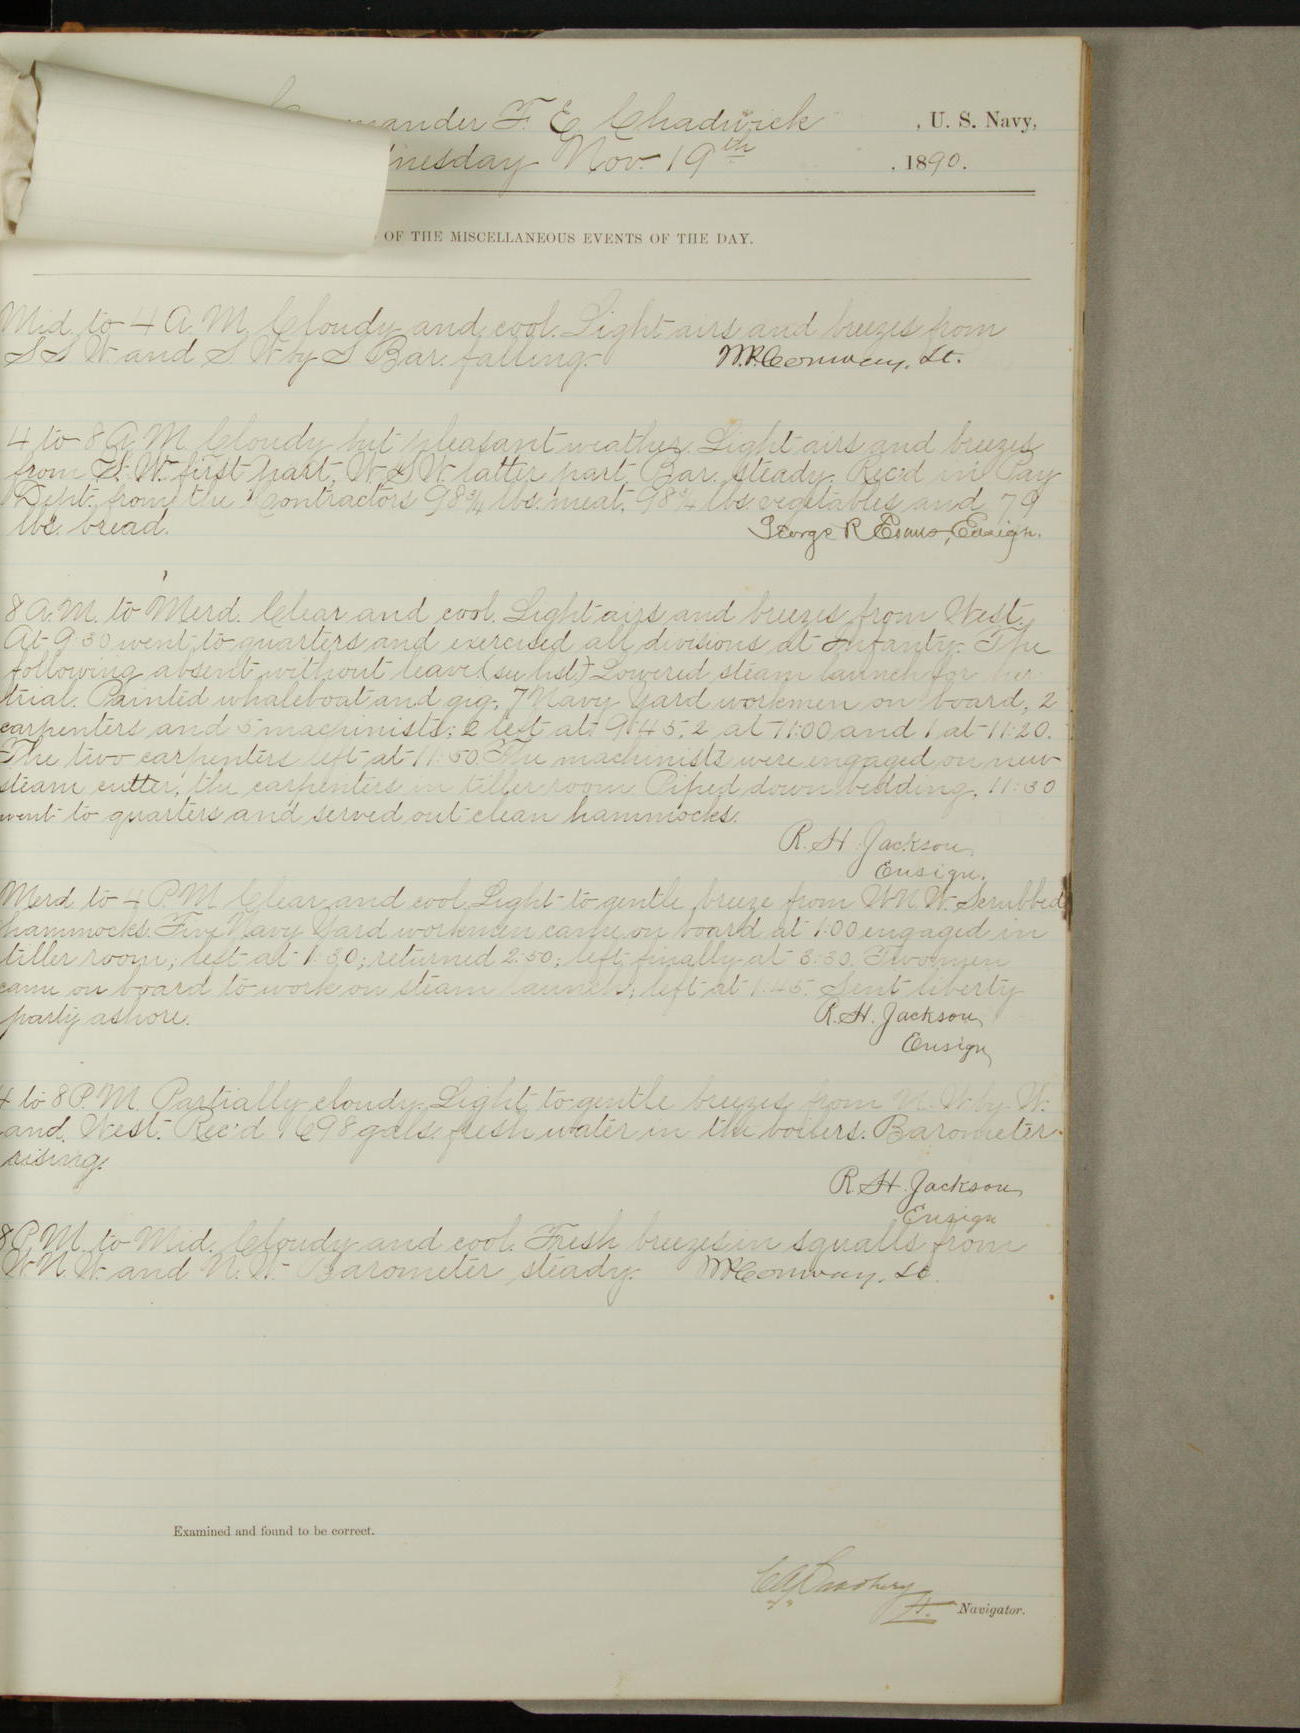 mmander F. E. Chadwick , U. S. Navy,
dnesday Nov. 19th , 1890.
OF THE MISCELLANEOUS EVENTS OF THE DAY.
Mid. to 4 A.M. Cloudy and cool. Light airs and breezes from
S S W and S W by S Bar. falling. W.P. Conway, Lt.
4 to 8 A.M. Cloudy but pleasant weather. Light airs and breezes
from W. first part, W S W. latter part. Bar. steady. Rec'd in Pay
Dept. from the contractors 98 3/4 lbs. meat, 98 3/4 lbs. vegetables and 79
lbs. bread. George R Evans, Ensign.
8 A.M. to Merd. Clear and cool. Light airs and breezes from West.
At 9 30 went to quarters and exercised all divisions at Infantry. The
following absent without leave (see list.) Lowered steam launch for her
trial. Painted whaleboat and gig. 7 Navy Yard workmen on board, 2
carpenters and 5 machinists; 2 left at 9:45, 2 at 11:00 and 1 at 11:20.
The two carpenters left at 11:50. The machinists were engaged on new
steam cutter, the carpenters in tiller room. Piped down bedding, 11:30
went to quarters and served out clean hammocks.
R. H. Jackson,
Ensign.
Merd to 4 P.M. Clear and cool. Light to gentle breeze from W N W. Scrubbed
hammocks. Five Navy Yard workmen came on board at 1:00 engaged in
tiller room; left at 1:30; returned 2:50; left finally at 3:30. Two men
came on board to work on steam launch; left at 1:45. Sent liberty
party ashore. R. H. Jackson,
Ensign,
4 to 8 P.M. Partially cloudy. Light to gentle breezes from N. W by W.
and West. Rec'd 1698 gals. fresh water in the boilers. Barometer
rising.
R. H. Jackson,
Ensign
8 P.M. to Mid. Cloudy and cool. Fresh breezes in squalls from
W N. W. and N. W. Barometer steady. W P Conway, Lt.
Examined and found to be correct.
Lt. Navigator.